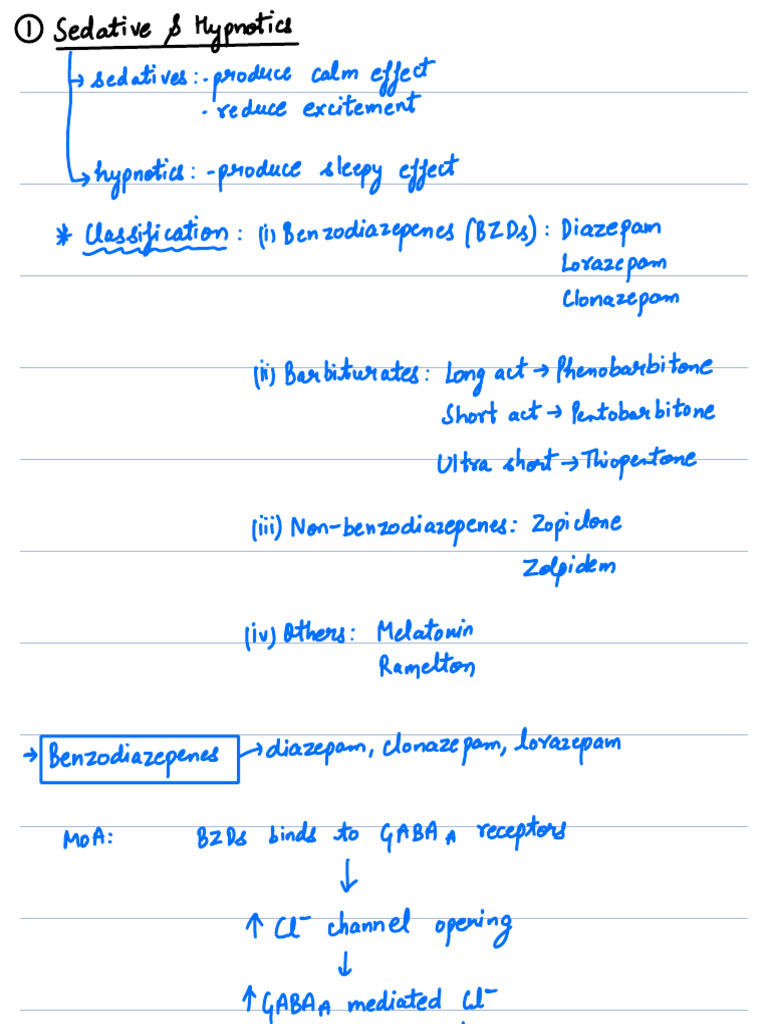 ① Sedative & Hypnotics
→ sedatives: - produce calm effect
- reduce excitement
→ hypnotics: - produce sleepy effect
* Classification: (i) Benzodiazepenes (BZDs): Diazepam
Lorazepam
Clonazepam
(ii) Barbiturates: Long act → Phenobarbitone
Short act → Pentobarbitone
Ultra short → Thiopentone
(iii) Non-benzodiazepenes: Zopiclone
Zolpidem
(iv) Others: Melatonin
Ramelton
→ Benzodiazepenes → diazepam, clonazepam, lorazepam
MoA: BZDs binds to GABA A receptors
↓
↑ Cl⁻ channel opening
↓
↑ GABA A mediated Cl⁻